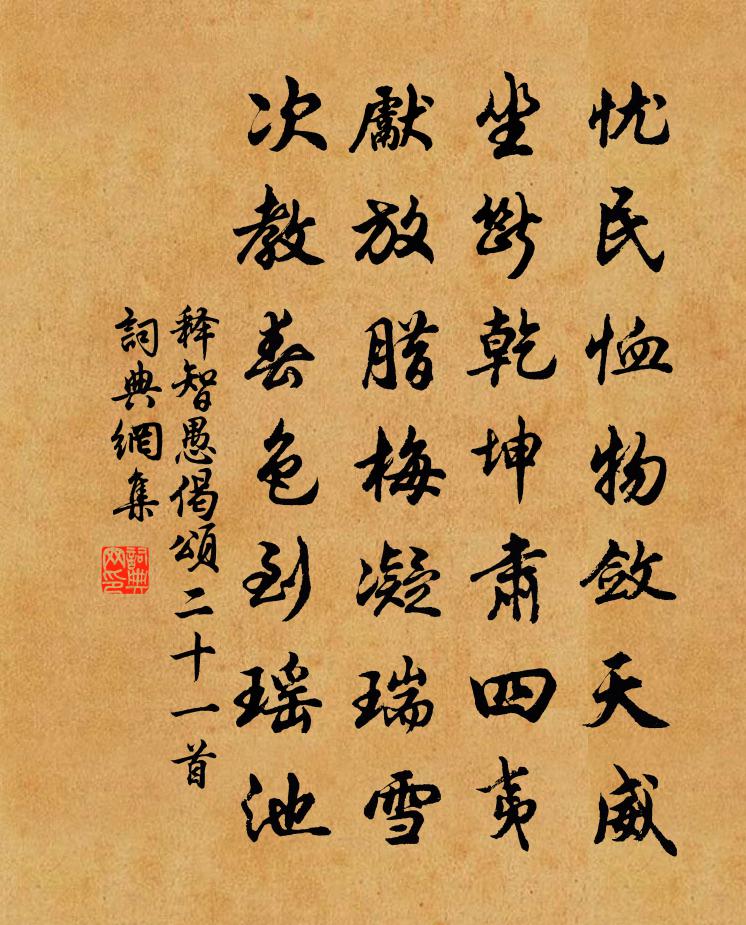 忧民恤物敛天威
坐斷乾坤肅四夷
獻放腊梅凝瑞雪
次教春色到瑶池
释智愚偈頌二十一首
詞典網集
詞典网印